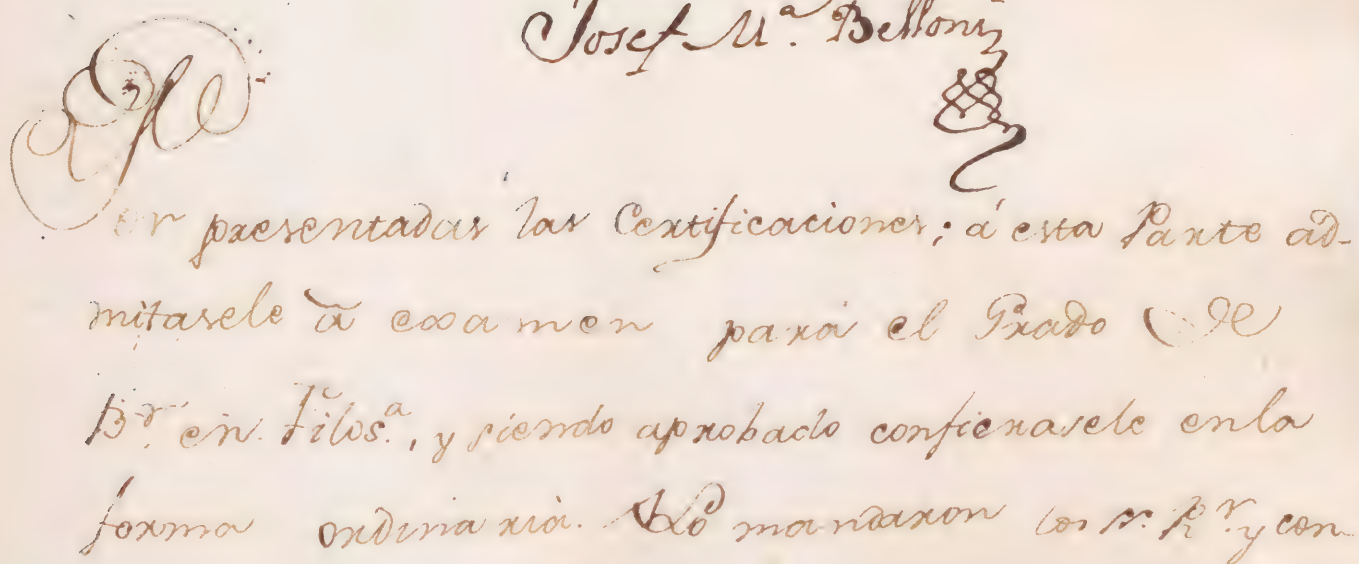 Josef M.ª Belloni
Por presentadas las Certificaciones; á esta Parte ad-
mitasele á examen para el Grado de
B.r en Filos.ª, y siendo aprobado confierasele en la
forma ordinaria. Lo mandaron los S.S. R.r y con